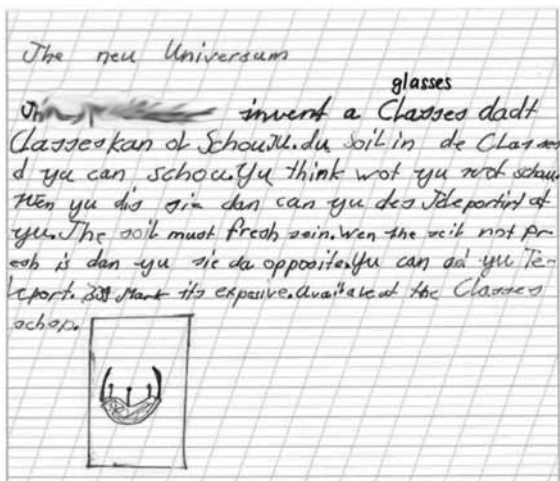 The neu Universum
glasses
invent a Classes dadt
Classes kan ol Schou Ju. du soil in de Classes
d yu can schou. Yu think wot yu wot schau.
Wen yu dis sie dan can yu des Ideportirt at
yu. The soil must fresh sein. Wen the seil not pr-
esh is dan yu sie da opposite. Yu can ad yu Te-
leport. Mark its expesive. Availabe at the Classes
schop.